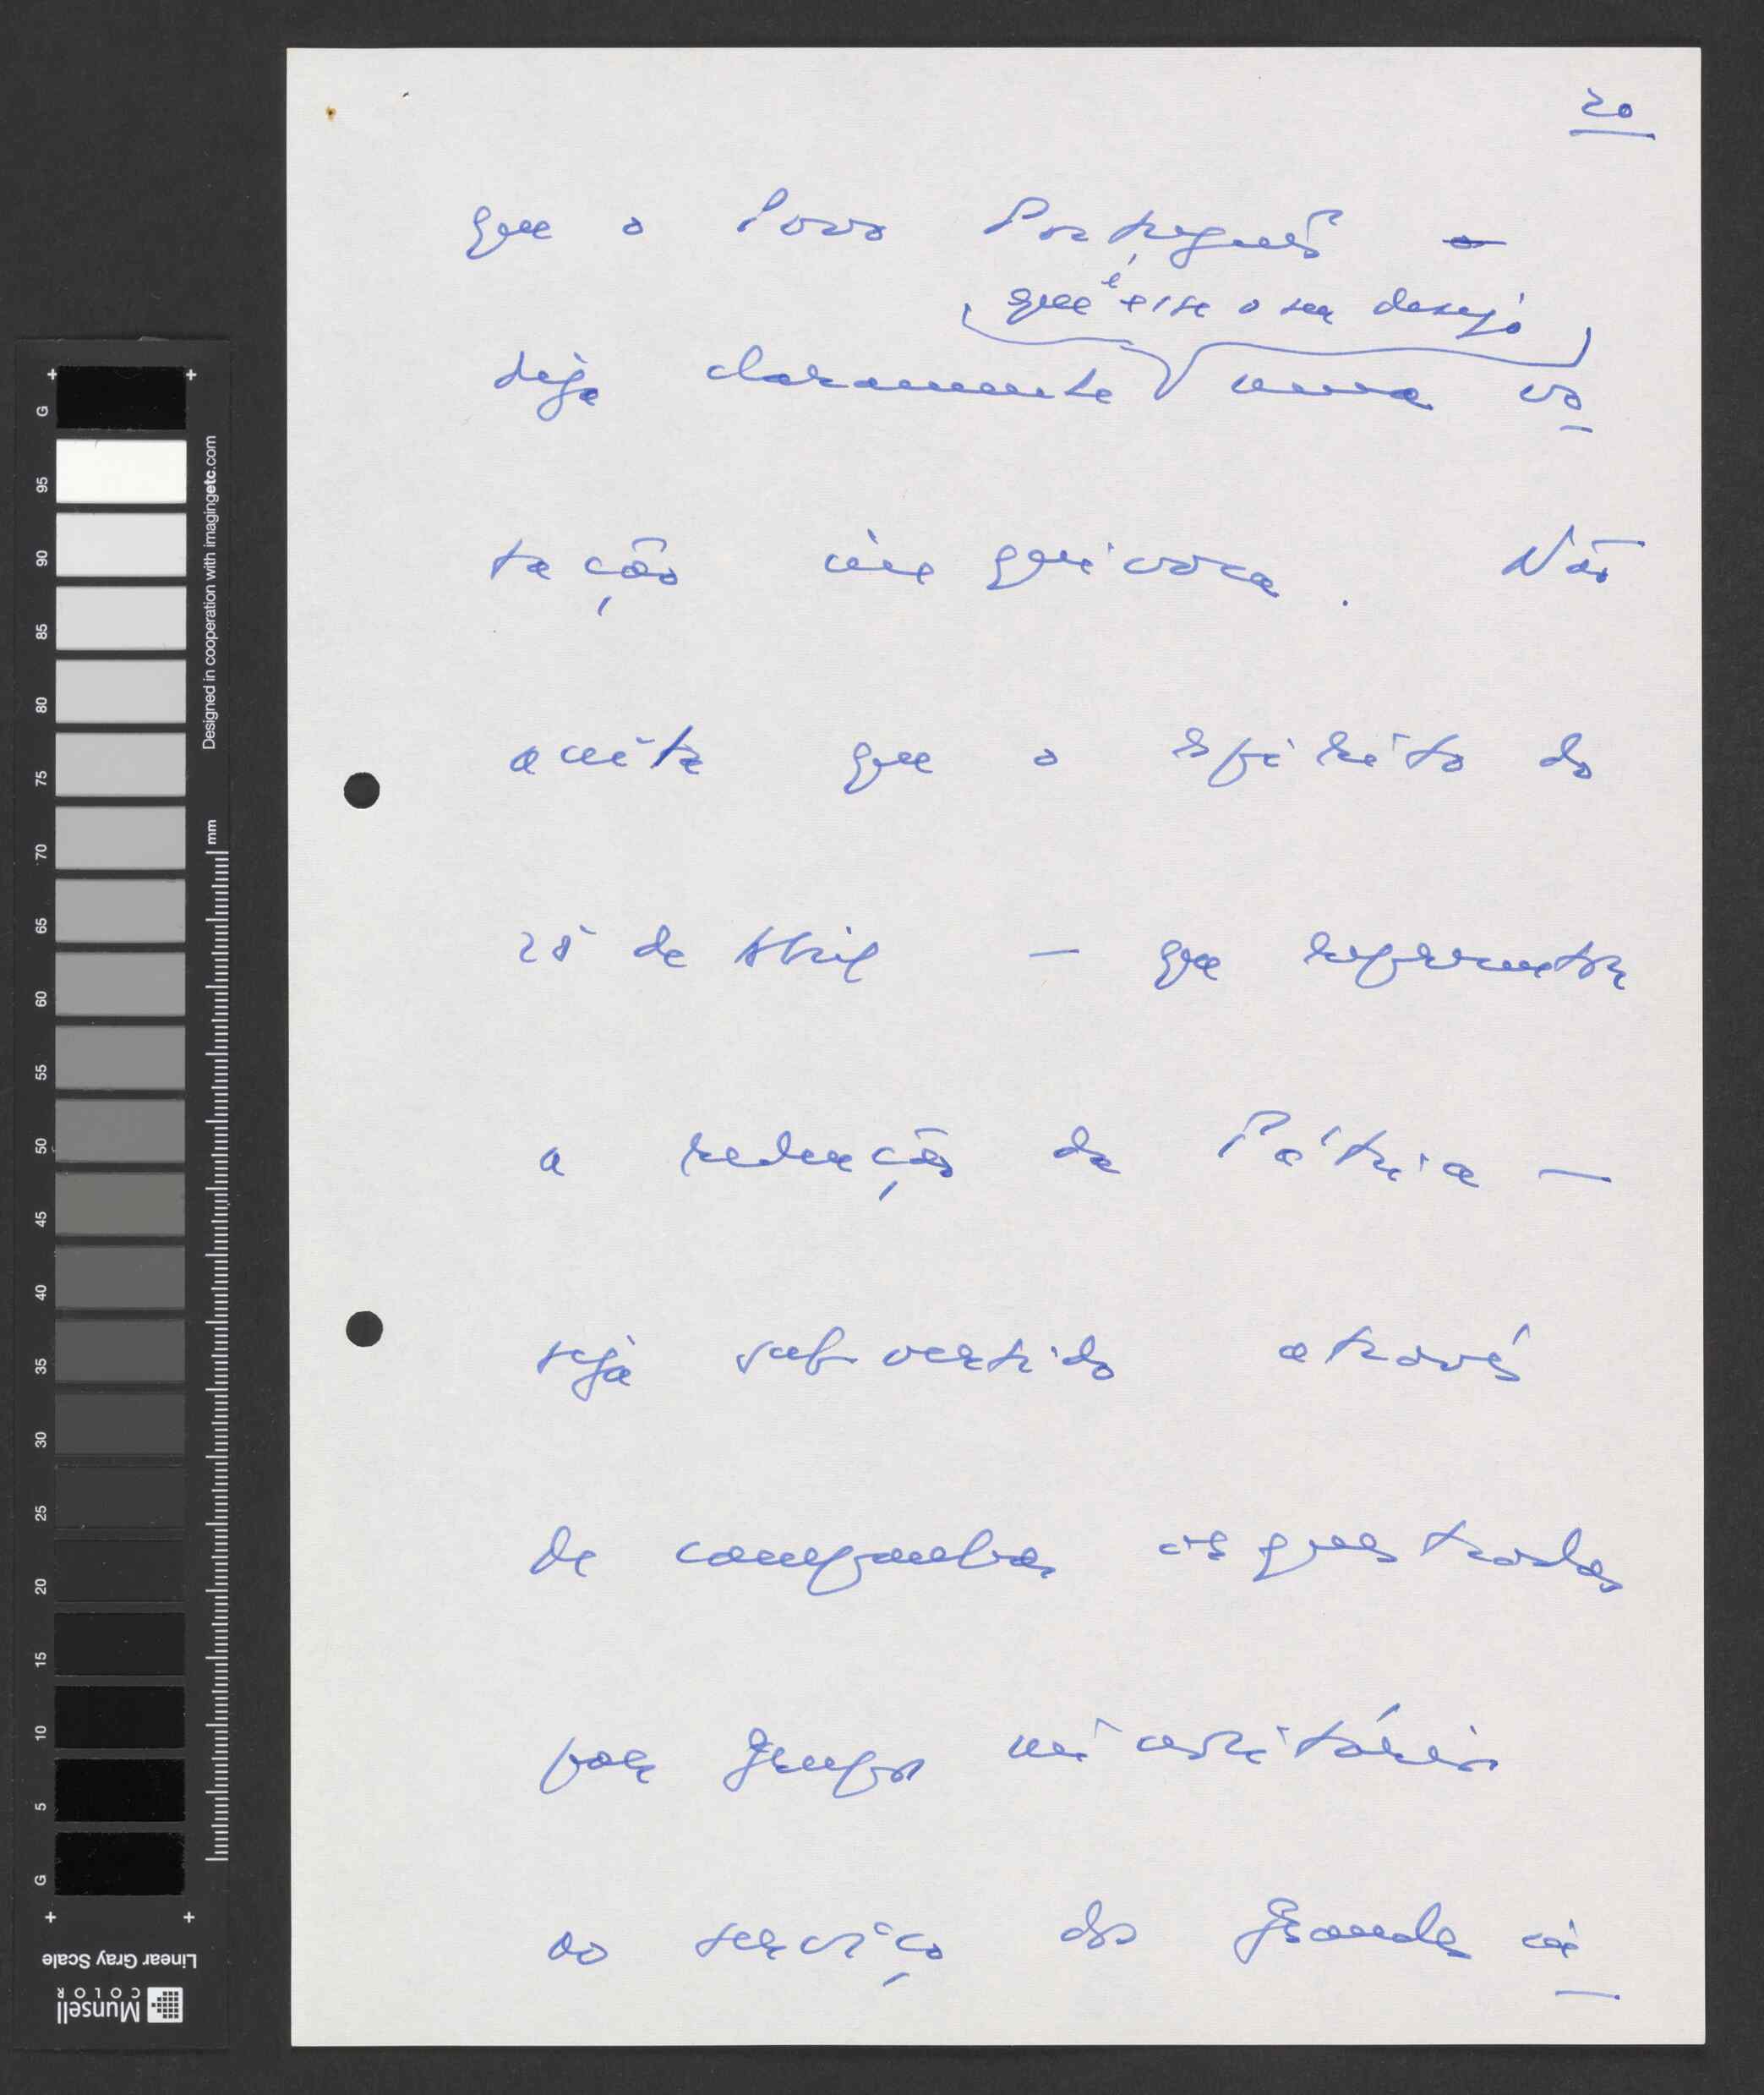 20
que o Povo Português
que é esse o seu desejo
diga claramente numa vo
tação inequívoca. Não
aceita que o espírito do
25 de Abril — que representou
a redenção da Pátria —
seja subvertido através
de campanhas orquestradas
por grupos minoritários
ao serviço dos grandes in
G 95 90 85 80 75 70 65 60 55 50 45 40 35 30 25 20 15 10 5 G
Designed in cooperation with imagingetc.com
mm
Linear Gray Scale
Munsell
COLOR